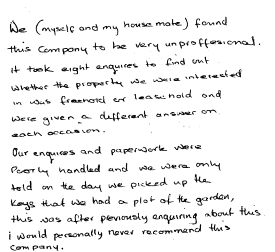 We (myself and my house mate) found
this company to be very unproffesional.
it took eight enquires to find out
whether the property we were interested
in was freehold or leasehold and
were given a different answer on
each occasion.
Our enquires and paperwork were
Poorly handled and we were only
told on the day we picked up the
keys that we had a plot of the garden,
this was after perviously enquiring about this.
i would personally never recommend this
company.